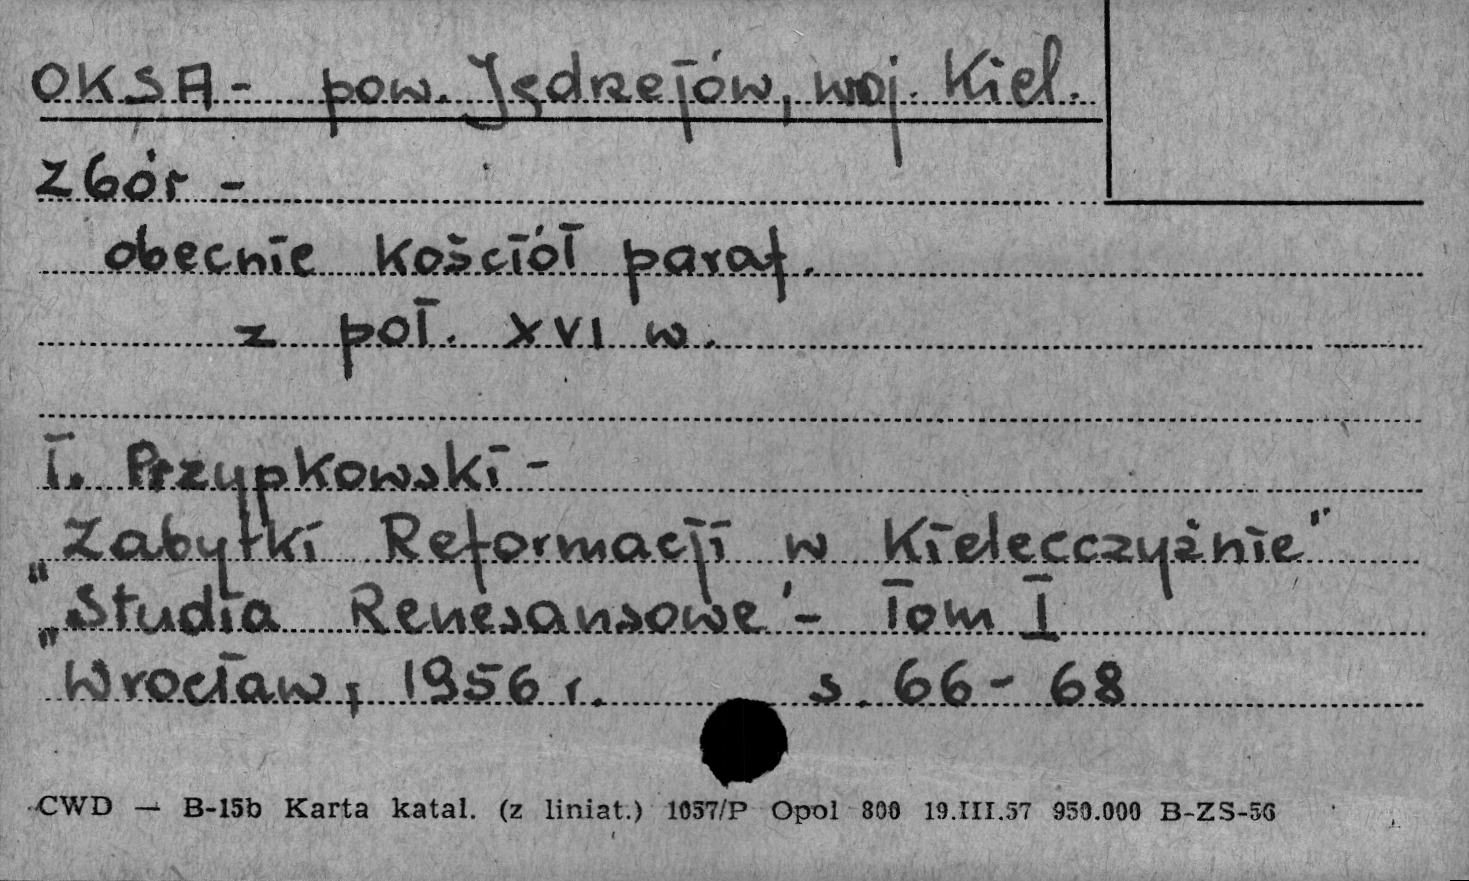 OKSA - pow. Jędrzejów, woj. Kiel.
Zbór -
obecnie kościół paraf.
z poł. XVI w.
T. Przypkowski -
„Zabytki Reformacji w Kielecczyźnie"
„Studia Renesansowe" - Tom I
Wrocław, 1956 r. s. 66 - 68
CWD — B-15b Karta katal. (z liniat.) 1057/P Opol 800 19.III.57 950.000 B-ZS-56